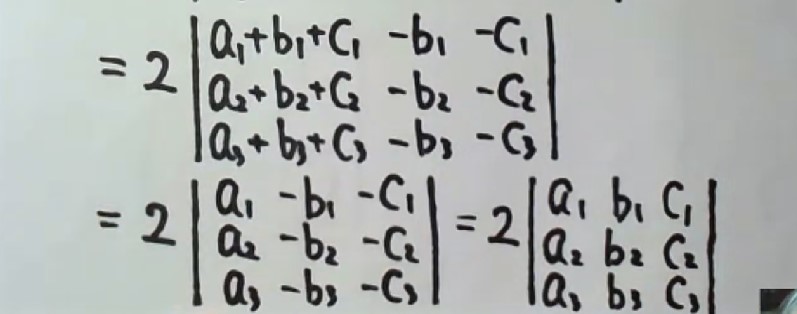 = 2 | a₁+b₁+c₁ -b₁ -c₁ |
| a₂+b₂+c₂ -b₂ -c₂ |
| a₃+b₃+c₃ -b₃ -c₃ |
= 2 | a₁ -b₁ -c₁ | = 2 | a₁ b₁ c₁ |
| a₂ -b₂ -c₂ | | a₂ b₂ c₂ |
| a₃ -b₃ -c₃ | | a₃ b₃ c₃ |